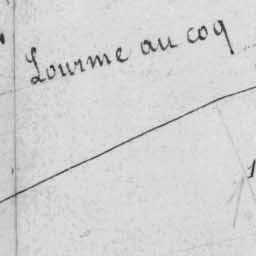 Lourme au coq
1